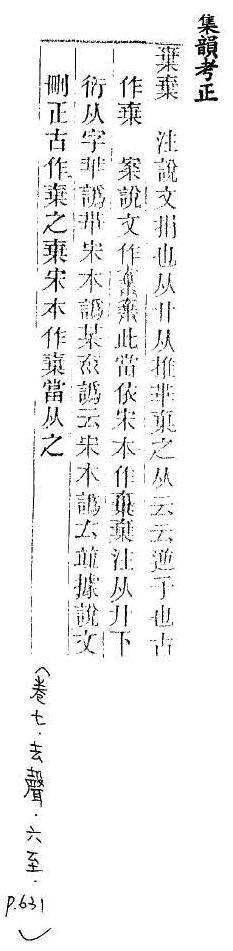 集韻考正
棄棄　注說文捐也从廾从推𠦒棄之从㐬㐬逆子也古
作棄　案說文作棄棄此當依宋本作棄棄注从廾下
衍从字𠦒譌𠦒宋本譌某㐬譌云宋本譌厶竝據說文
刪正古作棄之棄宋本作棄當从之
(卷七．去聲．六至．
P.631)